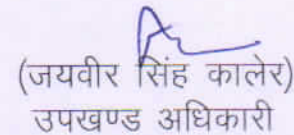 (जयवीर सिंह कालेर)
उपखण्ड अधिकारी